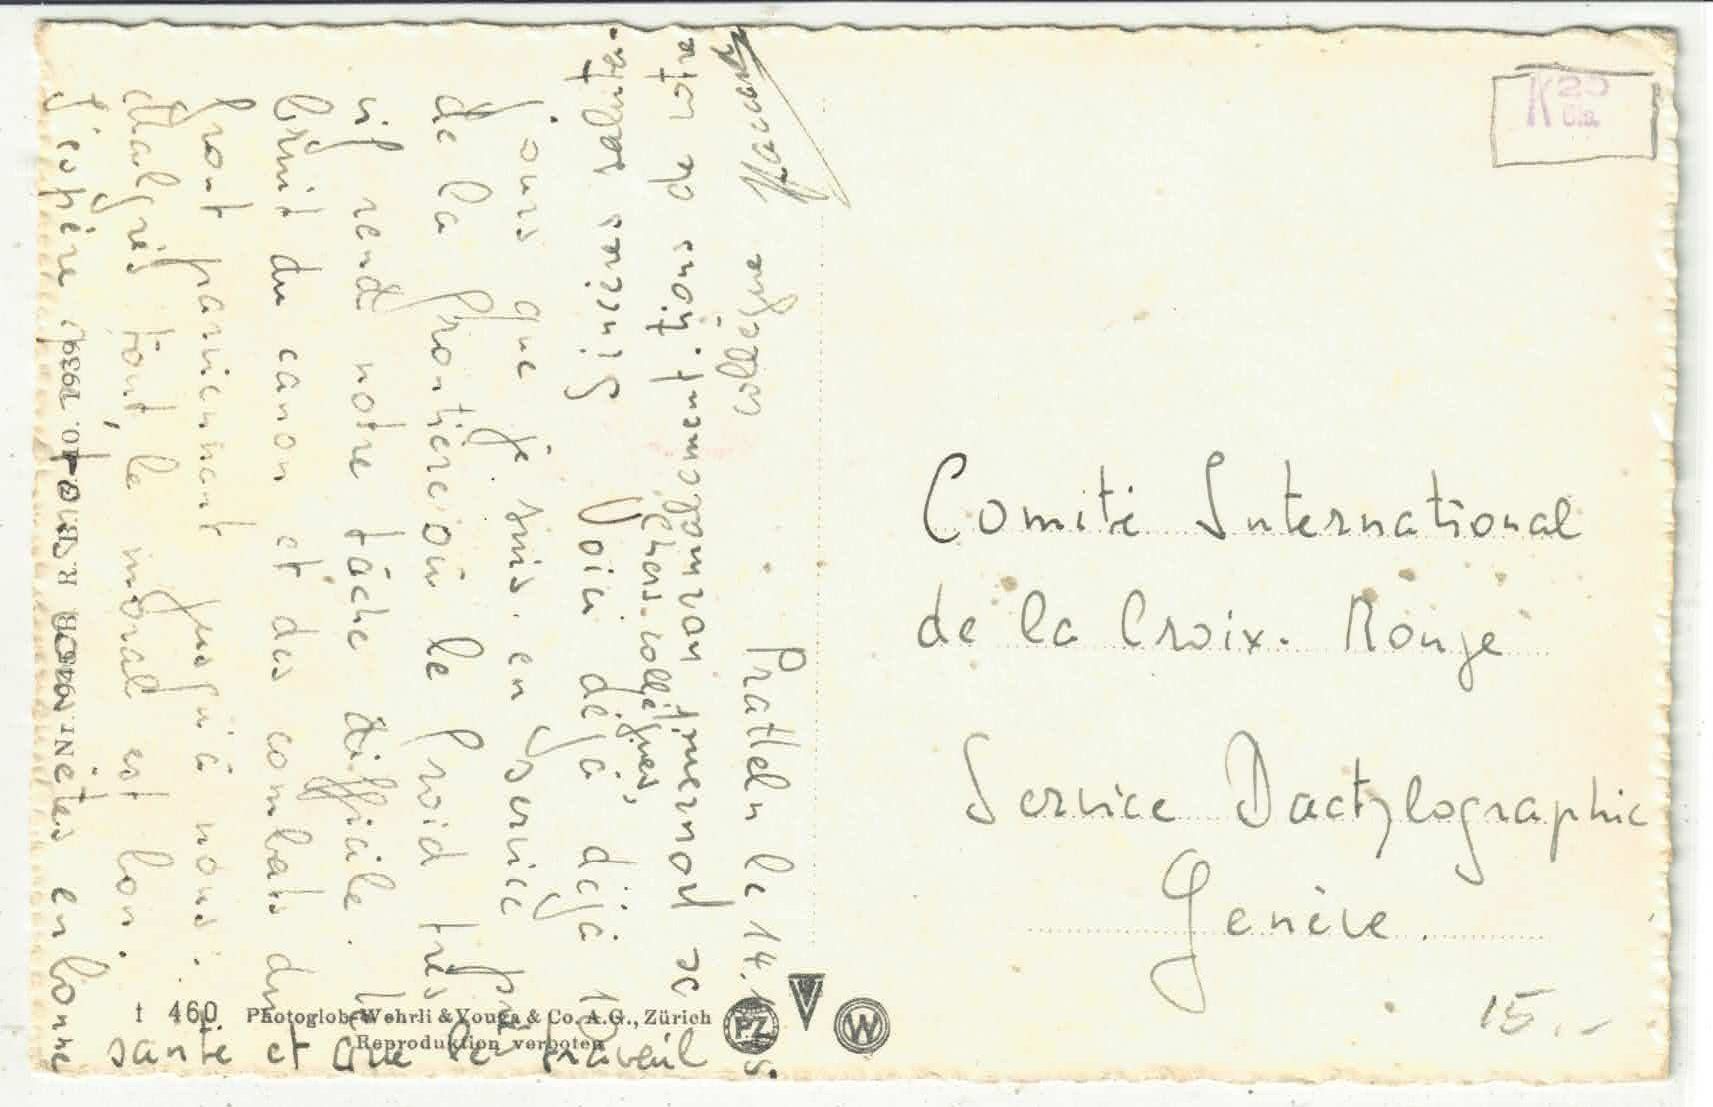 Pratteln le 14.
Chers collègues,
Voici déjà déjà
jours que je suis en service près
de la frontière où le froid très
vif rend notre tâche difficile. Le
bruit du canon et des combats du
front parviennent jusqu'à nous.
Malgrés tout, le moral est bon.
J'espère que vous êtes en bonne
santé et que le traveil
se normalement.
Sincères saluta-
tions de votre
collègue Jaccard
Comité International
de la Croix-Rouge
Service Dactylographie
Genève
15.-
t 460 Photoglob-Wehrli & Vouga & Co. A.G., Zürich
Reproduktion verboten
PZ V W
10. 1939
K 25